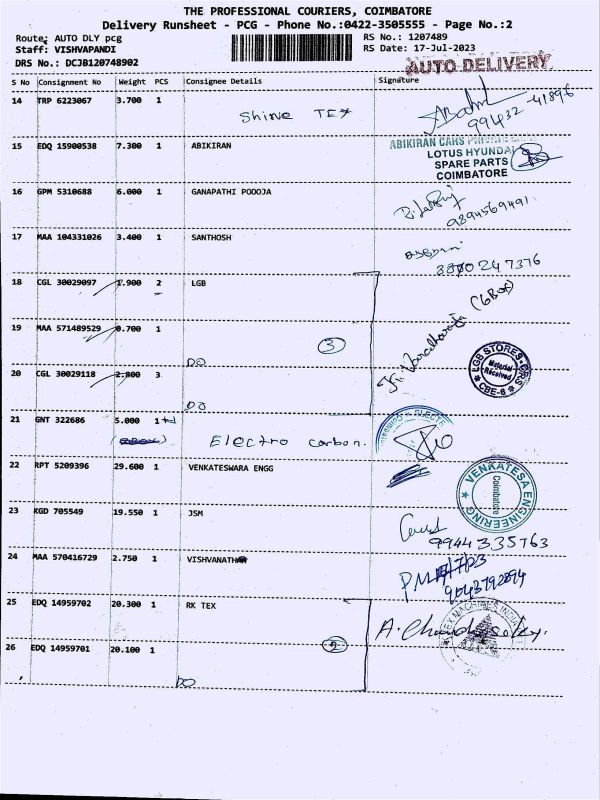 THE PROFESSIONAL COURIERS, COIMBATORE
Delivery Runsheet - PCG - Phone No.:0422-3505555 - Page No.:2
Route: AUTO DLY pcg RS No.: 1207489
Staff: VISHVAPANDI RS Date: 17-Jul-2023
DRS No.: DCJB120748902 AUTO DELIVERY
S No Consignment No Weight PCS Consignee Details Signature
14 TRP 6223067 3.700 1 Shine TEX
99432-41896
15 EDQ 15900538 7.300 1 ABIKIRAN
ABIKIRAN CARS PRIVATE
LOTUS HYUNDAI
SPARE PARTS
COIMBATORE
16 GPM 5310688 6.000 1 GANAPATHI POOOJA
9894569491
17 MAA 104331026 3.400 1 SANTHOSH
247376
18 CGL 30029097 1.900 2 LGB
(6Box)
19 MAA 571489529 0.700 1
3
DO
LGB STORES
Material Received
CBE-6
20 CGL 30029118 2.800 3
DO
21 GNT 322686 5.000 1 Electro carbon
ELECTR
22 RPT 5209396 29.600 1 VENKATESWARA ENGG
VENKATESA ENGINEERING
Coimbatore
23 KGD 705549 19.550 1 JSM
9944335763
24 MAA 570416729 2.750 1 VISHVANATH
25 EDQ 14959702 20.300 1 RK TEX
A. Chandrasekar
TEX MACHINES INDIA
26 EDQ 14959701 20.100 1
DO